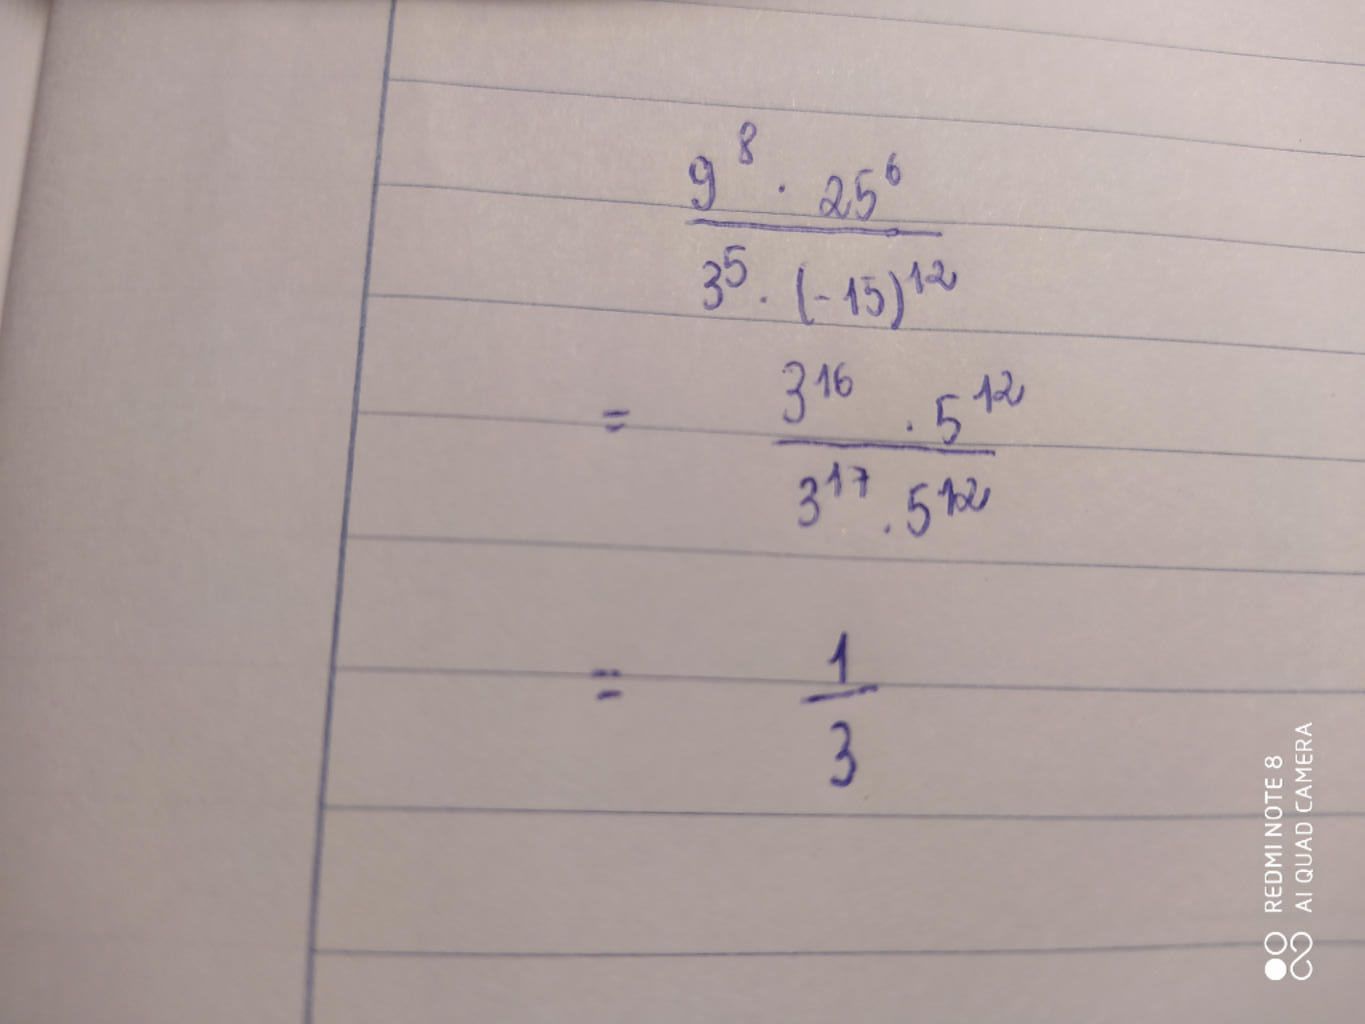 9⁸ · 25⁶
3⁵ · (-15)¹²
= 3¹⁶ · 5¹²
3¹⁷ · 5¹²
= 1
3
REDMI NOTE 8
AI QUAD CAMERA